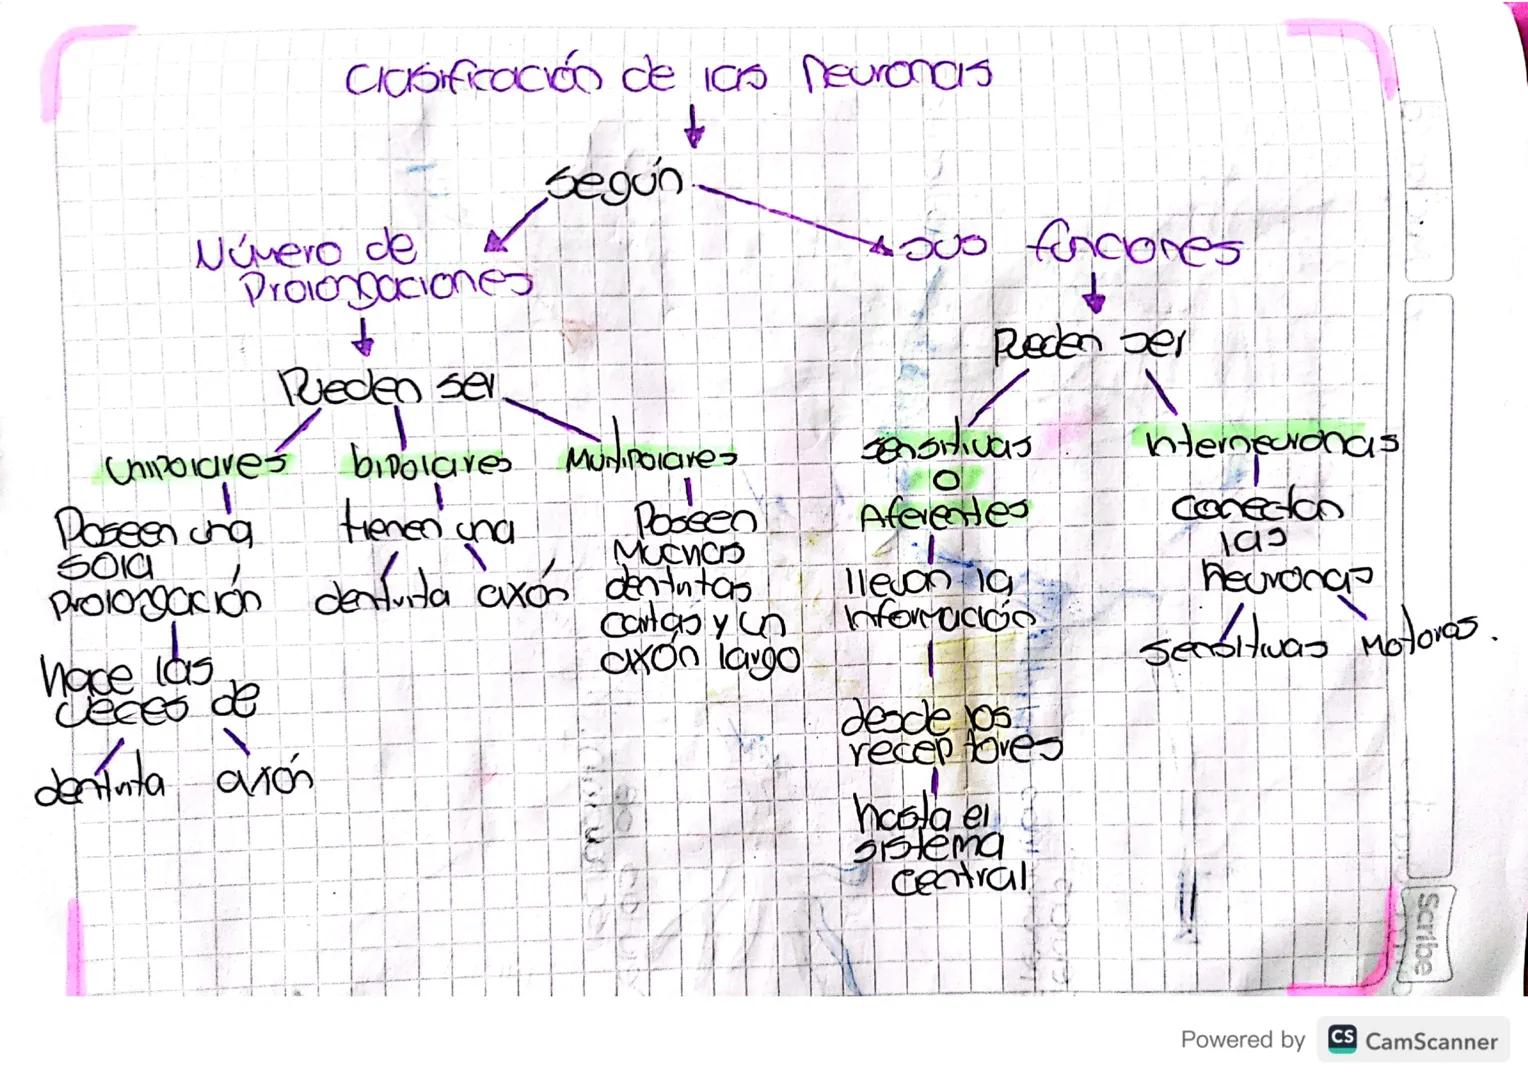 Clasificación de las Neuronas
según
Número de
Prolongaciones
Pueden ser
unipolares
Poseen una
sola
prolongación
hace las
veces de
dentrita axón
bipolares
tienen una
dentrita axón
Multipolares
Poseen
Muchas
dentritas
cortas y un
axón largo
sus funciones
Pueden ser
sensitivas
o
Aferentes
llevan la
información
desde los
receptores
hasta el
sistema
central
interneuronas
conectan
las
neuronas
sensitivas Motoras.
Scribe
Powered by CS CamScanner